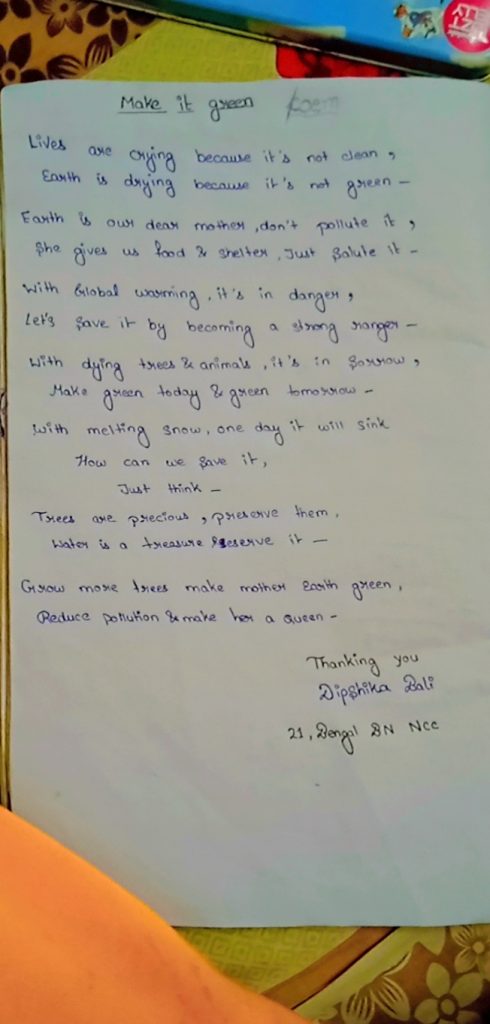 Make it green Poem
Lives are crying because it's not clean,
Earth is drying because it's not green —
Earth is our dear mother, don't pollute it,
She gives us food & shelter, Just Salute it —
With Global warming, it's in danger,
Let's Save it by becoming a strong ranger —
With dying trees & animals, it's in Sorrow,
Make green today & green tomorrow —
With melting snow, one day it will sink
How can we Save it,
Just think —
Trees are precious, preserve them,
Water is a treasure Reserve it —
Grow more trees make mother Earth green,
Reduce pollution & make her a queen —
Thanking you
Dipshika Bali
21, Bengal BN NCC